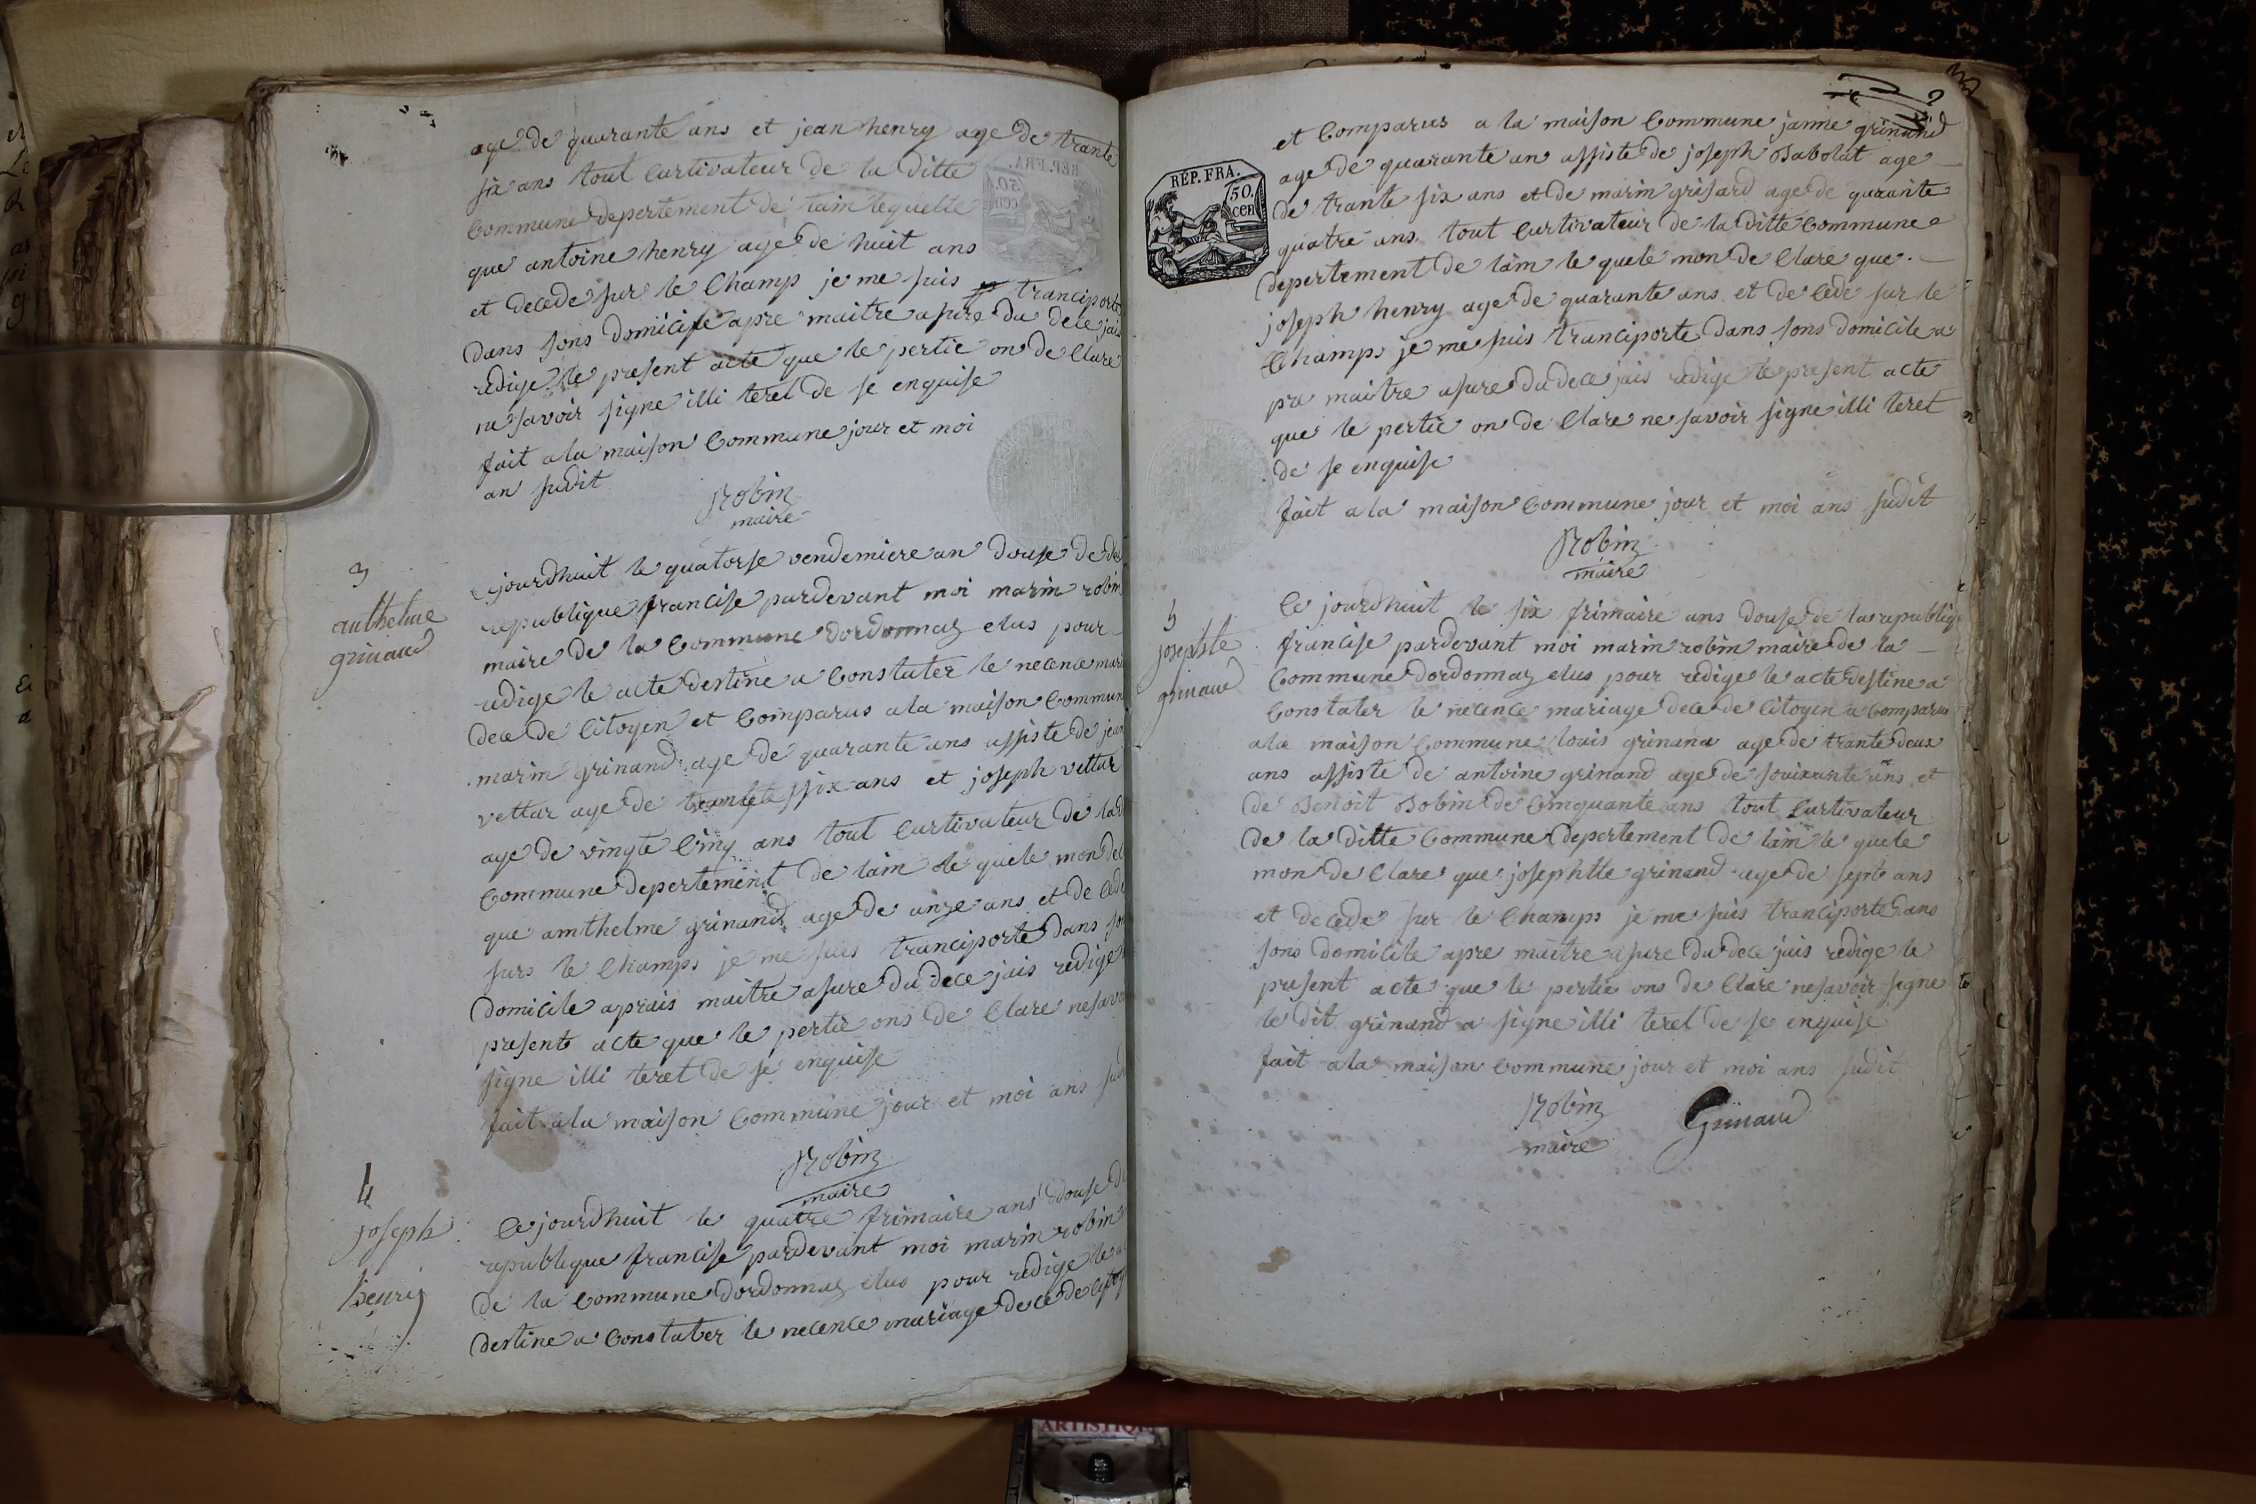 age de quarante ans et jean henry age de trante
six ans tout curtivateur de la ditte
commune depertement de lain lequelle
que antoine henry age de huit ans
et decede sur le champ je me suis tranciporte
dans sons domicile apre maitre asure du dece jais
redige le present acte que le pertie on de clare
ne savoir signe illi teret de se enquise
fait a la maison commune jour et moi
an sudit
Robin
maire
3
anthelme
grinand
ce jourdhuit le quatorse vendemiere an douse de de
republique francise pardevant moi marin robin
maire de la commune dordonnaz elus pour
redige le acte destine a constater le necence mari
dece de citoyen et comparus a la maison commun
marin grinand age de quarante ans assiste de jean
vettar age de six ans et joseph vettar
age de vingte cinq ans tout curtivateur de lad
commune depertement de lain le quele mon de
que amthelme grinand age de unze ans et de cede
surs le champs je me suis tranciporte dans so
domicile aprais maitre asure du dece jais redige
presente acte que le pertie ons de clare ne savo
signe illi teret de se enquise
fait a la maison commune jour et moi ans sud
Robin
maire
4
joseph
henrij
Ce jourdhuit le quatre frimaire ans douse de
republique francise pardevant moi marin robin
de la commune dordonnaz elus pour redige le
destine a constater le necence mariage dece de citoy
REP. FRA.
50.
CEN
et comparus a la maison commune janne grinand
age de quarante an assiste de joseph Babolat age
de trante six ans et de marin grisard age de quarante
quatre ans tout curtivateur de la ditte commune
depertement de lain le quele mon de clare que
joseph henry age de quarante ans et de cede sur le
champs je me suis tranciporte dans sons domicile a
pre maitre asure du dece jais redige le present acte
que le pertie on de clare ne savoir signe illi teret
de se enquise
fait a la maison commune jour et moi ans sudit
Robin
maire
5
josephte
grinand
Ce jourdhuit le six frimaire ans douse de la republiq
francise pardevant moi marin robin maire de la
commune dordonnaz elus pour redige le acte destine a
constater le necence mariage dece de citoyen a comparu
a la maison commune louis grinand age de trante deux
ans assiste de antoine grinand age de souixante ans et
de Benoit Bobin de cinquante ans tout curtivateur
de la ditte commune depertement de lain le quele
mon de clare que josephtte grinand age de septe ans
et decede sur le champs je me suis tranciporte dans
sons domicile apre maitre asure du dece jais redige le
present acte que le pertie ons de clare ne savoir signe
le dit grinand a signe illi teret de se enquise
fait a la maison commune jour et moi ans sudit
Robin
maire
Grinand
ARTISTIQU